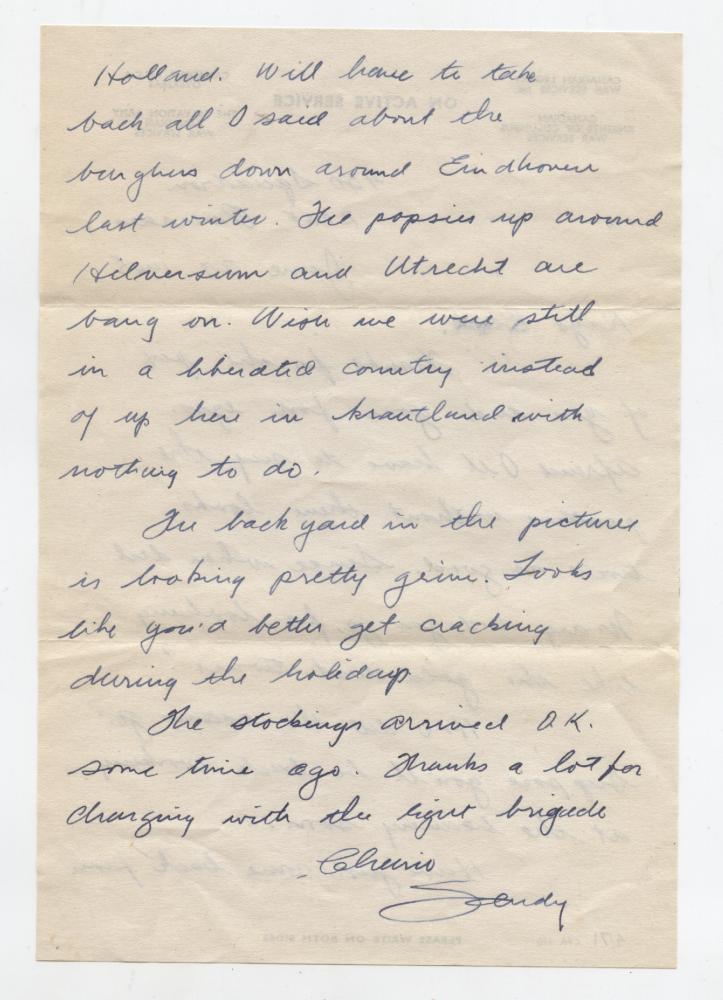 Holland. Will have to take
back all I said about the
burghers down around Eindhoven
last winter. The popsies up around
Hilversum and Utrecht are
bang on. Wish we were still
in a liberated country instead
of up here in krautland with
nothing to do.
The back yard in the pictures
is looking pretty grim. Looks
like you'd better get cracking
during the holidays
The stockings arrived O.K.
some time ago. Thanks a lot for
charging with the light brigade
Cheerio
Sandy
PLEASE WRITE ON BOTH SIDES
ON ACTIVE SERVICE